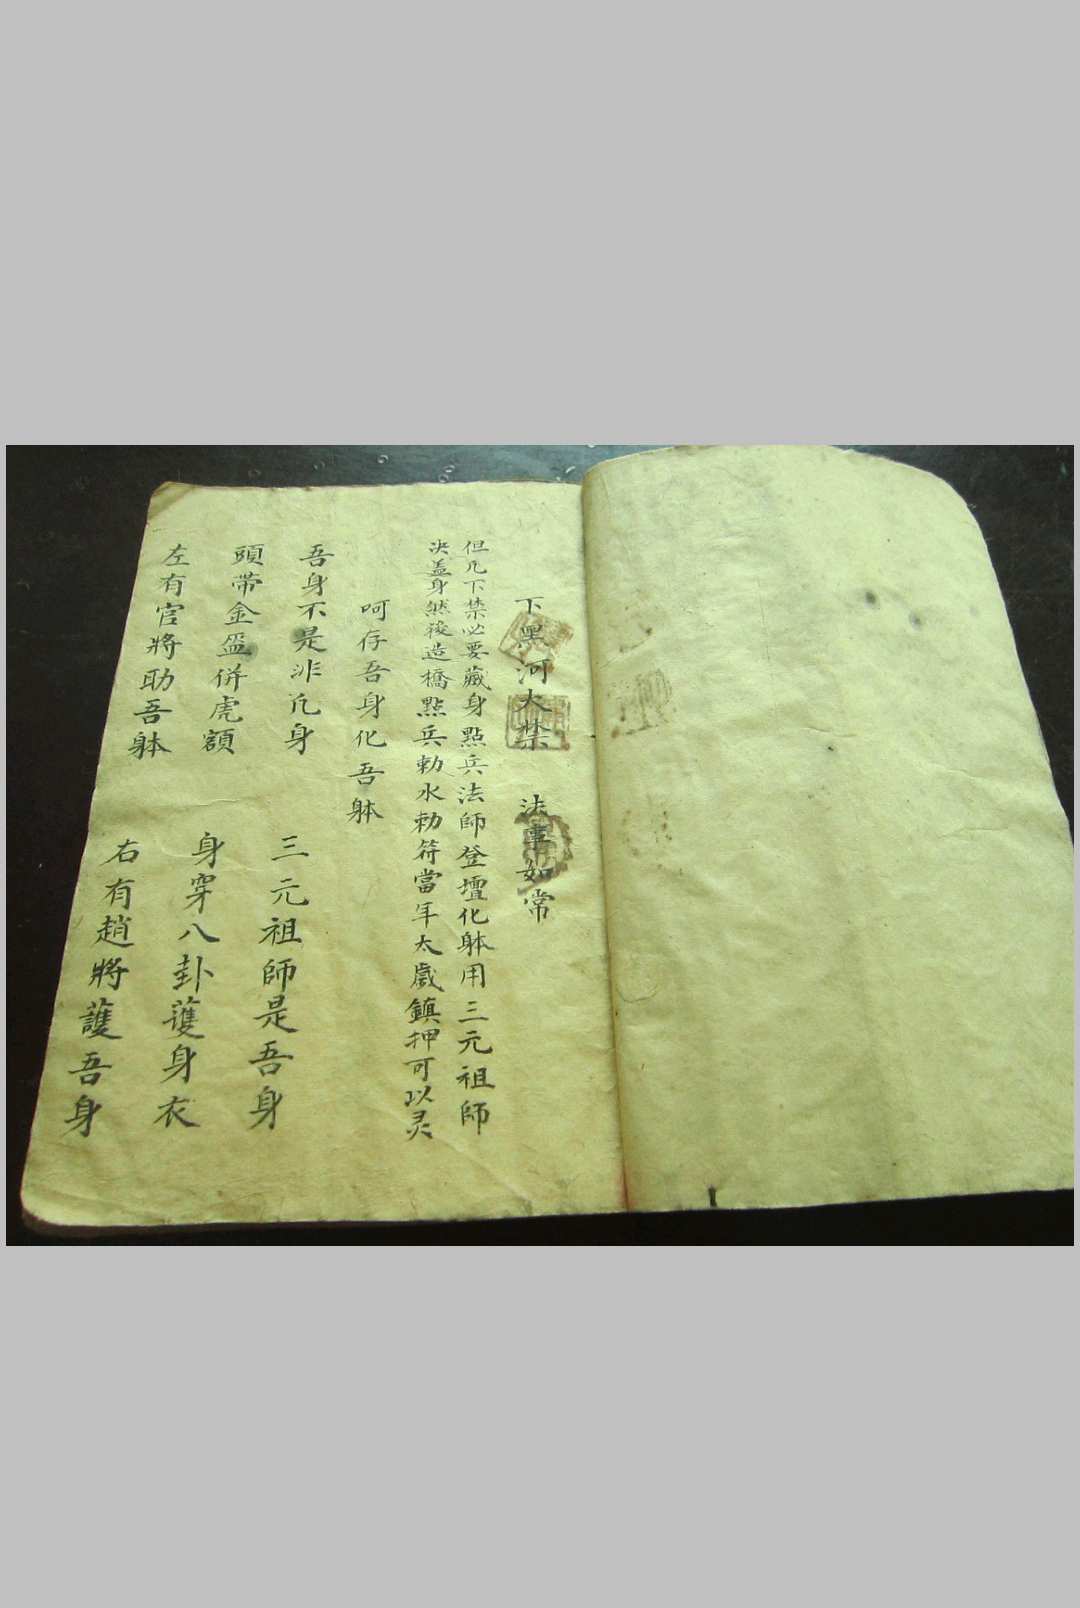 下黑河大禁 法事如常
但凢下禁必要藏身點兵法師登壇化躰用三元祖師
决盖身然後造橋點兵勅水勅符當年太歲鎮押可以灵
呵存吾身化吾躰
吾身不是非凢身 三元祖師是吾身
頭帶金盔併虎額 身穿八卦䕶身衣
左有官將助吾躰 右有趙將䕶吾身